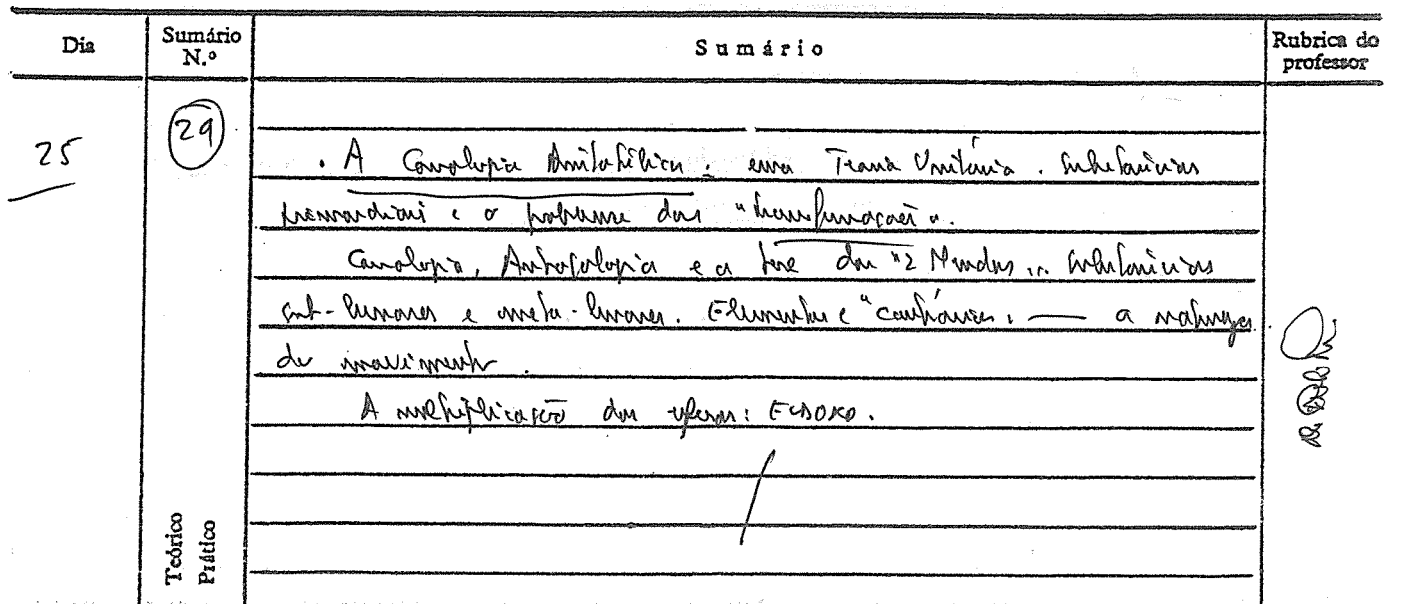 Dia
Sumário N.º
Sumário
Rubrica do professor
25
29
. A Cosmologia Aristotélica: uma Teoria Unitária. Substâncias
primordiais e o problema das "transformações".
Cosmologia, e a tese dos "2 Mundos". Substâncias
sub-lunares e meta-lunares. Elementos e "contrários". — a natureza
do movimento.
A multiplicação das esferas: EUDOXO.
Teórico
Prático